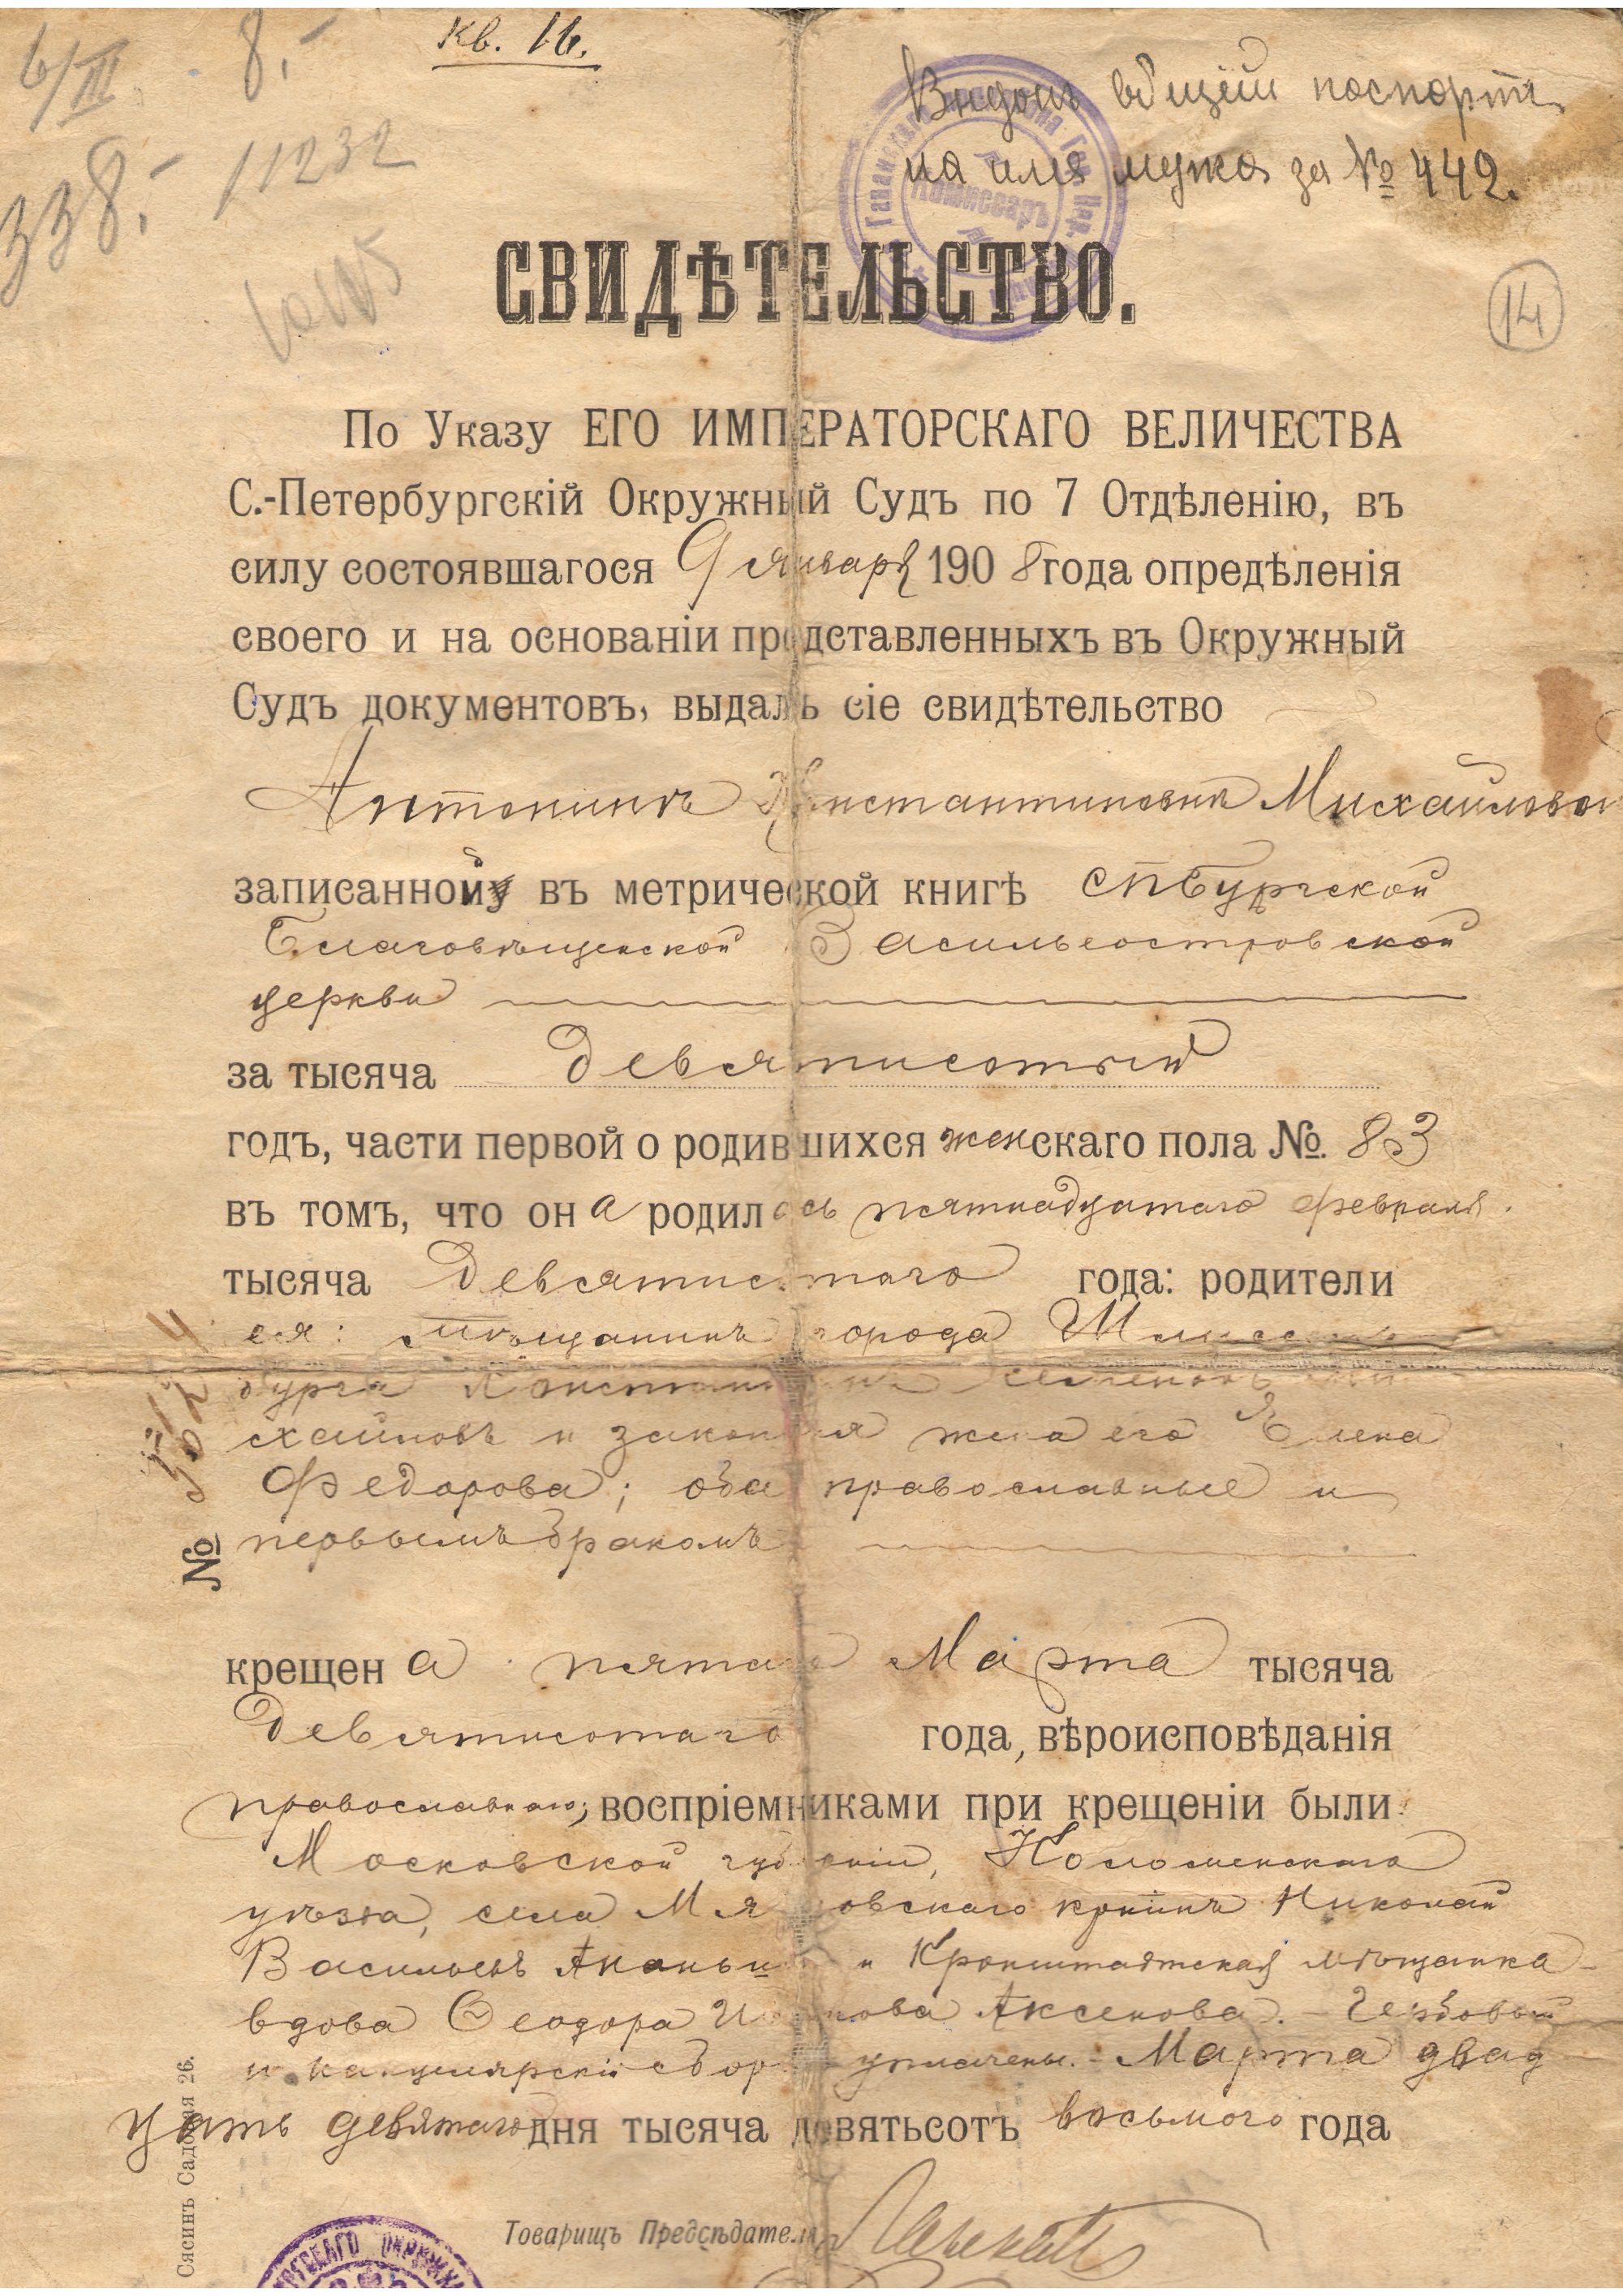 6/III 8.-
кв. 16.
338.- 11232
Выданъ общій паспортъ
на имя мужа за № 442.
Комиссаръ
СВИДѢТЕЛЬСТВО.
14
По Указу ЕГО ИМПЕРАТОРСКАГО ВЕЛИЧЕСТВА
С.-Петербургскій Окружный Судъ по 7 Отдѣленію, въ
силу состоявшагося 9 января 1908 года опредѣленія
своего и на основаніи представленныхъ въ Окружный
Судъ документовъ, выдалъ сіе свидѣтельство
Антонинѣ Константиновнѣ Михайловой
записанной въ метрической книгѣ СПБургской
Благовѣщенской Васильеостровской
церкви
за тысяча девятисотый
годъ, части первой о родившихся женскаго пола №. 83
въ томъ, что она родилась пятнадцатаго февраля
тысяча девятисотаго года: родители
ея: мѣщанинъ города Шлиссель
бурга Константинъ Семеновъ Ми
хайловъ и законная жена его Елена
Федорова; оба православные и
первымъ бракомъ
№
крещена пятаго Марта тысяча
девятисотаго года, вѣроисповѣданія
православнаго; воспріемниками при крещеніи были
Московской губерніи, Коломенскаго
уѣзда, села Мячковскаго кр-нинъ Николай
Васильевъ Ананьинъ и Кронштадтская мѣщанка
вдова Ѳеодора Иванова Аксенова. - Гербовый
и канцелярскій сборы уплачены. - Марта двад
цать девятаго дня тысяча девятьсотъ восьмого года
Сясинъ Садовая 26.
Товарищъ Предсѣдателя